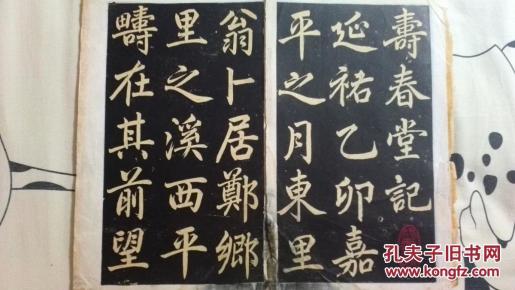 壽春堂記
延祐乙卯嘉
平之月東里
翁卜居鄭鄉
里之溪西平
疇在其前望
孔夫子旧书网
www.kongfz.com